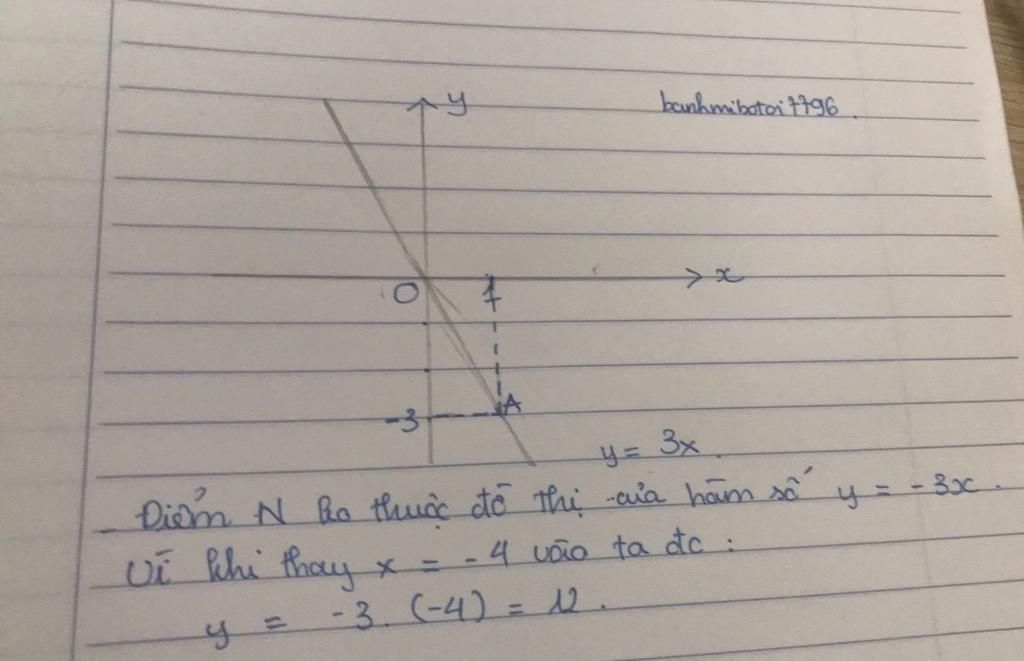 y
banhmibotoi7796.
x
O
1
A
-3
y = 3x.
Điểm N ko thuộc đồ thị của hàm số y = -3x.
Vì khi thay x = -4 vào ta đc :
y = -3. (-4) = 12.